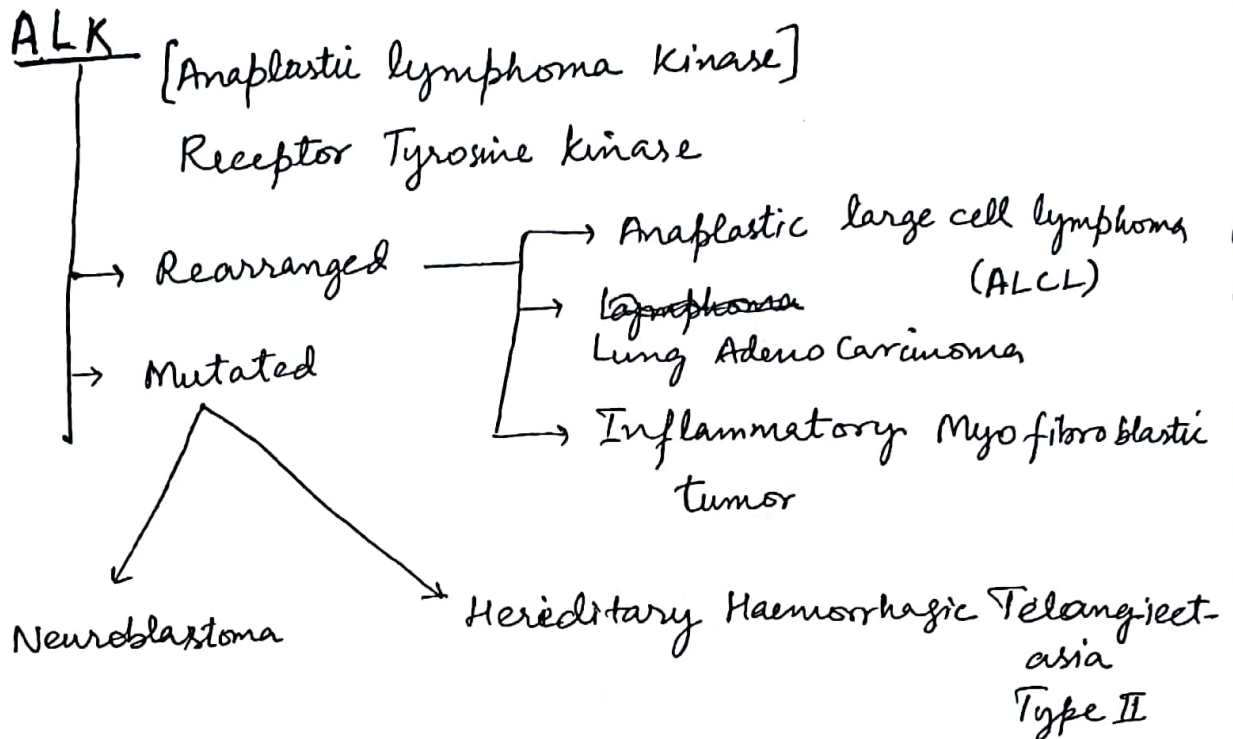 ALK
[Anaplastic lymphoma kinase]
Receptor Tyrosine kinase
Rearranged
Anaplastic large cell lymphoma
(ALCL)
Lymphoma
Lung Adeno Carcinoma
Inflammatory Myofibroblastic
tumor
Mutated
Neuroblastoma
Hereditary Haemorrhagic Telangiect-
asia
Type II